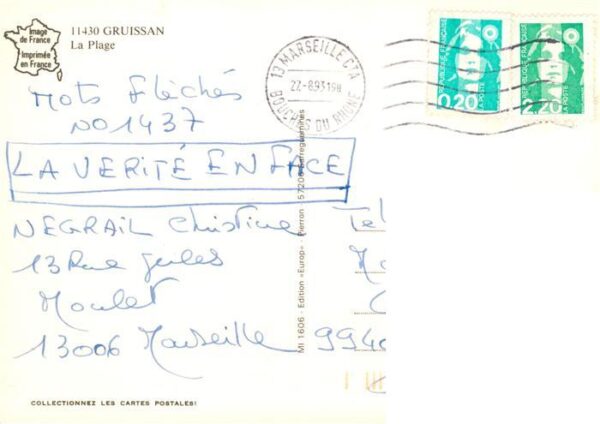 Image
de France
Imprimée
en France
11430 GRUISSAN
La Plage
13 MARSEILLE C^TA
22-8.93 19H
BOUCHES DU RHONE
REPUBLIQUE FRANÇAISE
0,20
LA POSTE
REPUBLIQUE FRANÇAISE
2,20
LA POSTE
Mots fléchés
NO 1437
LA VERITÉ EN FACE
NEGRAIL Christine
13 Rue Jules
Moulet
13006 Marseille
Tel
9940
MI 1606 - Edition «Europ» - Pierron - 57206 Sarreguemines
COLLECTIONNEZ LES CARTES POSTALES!